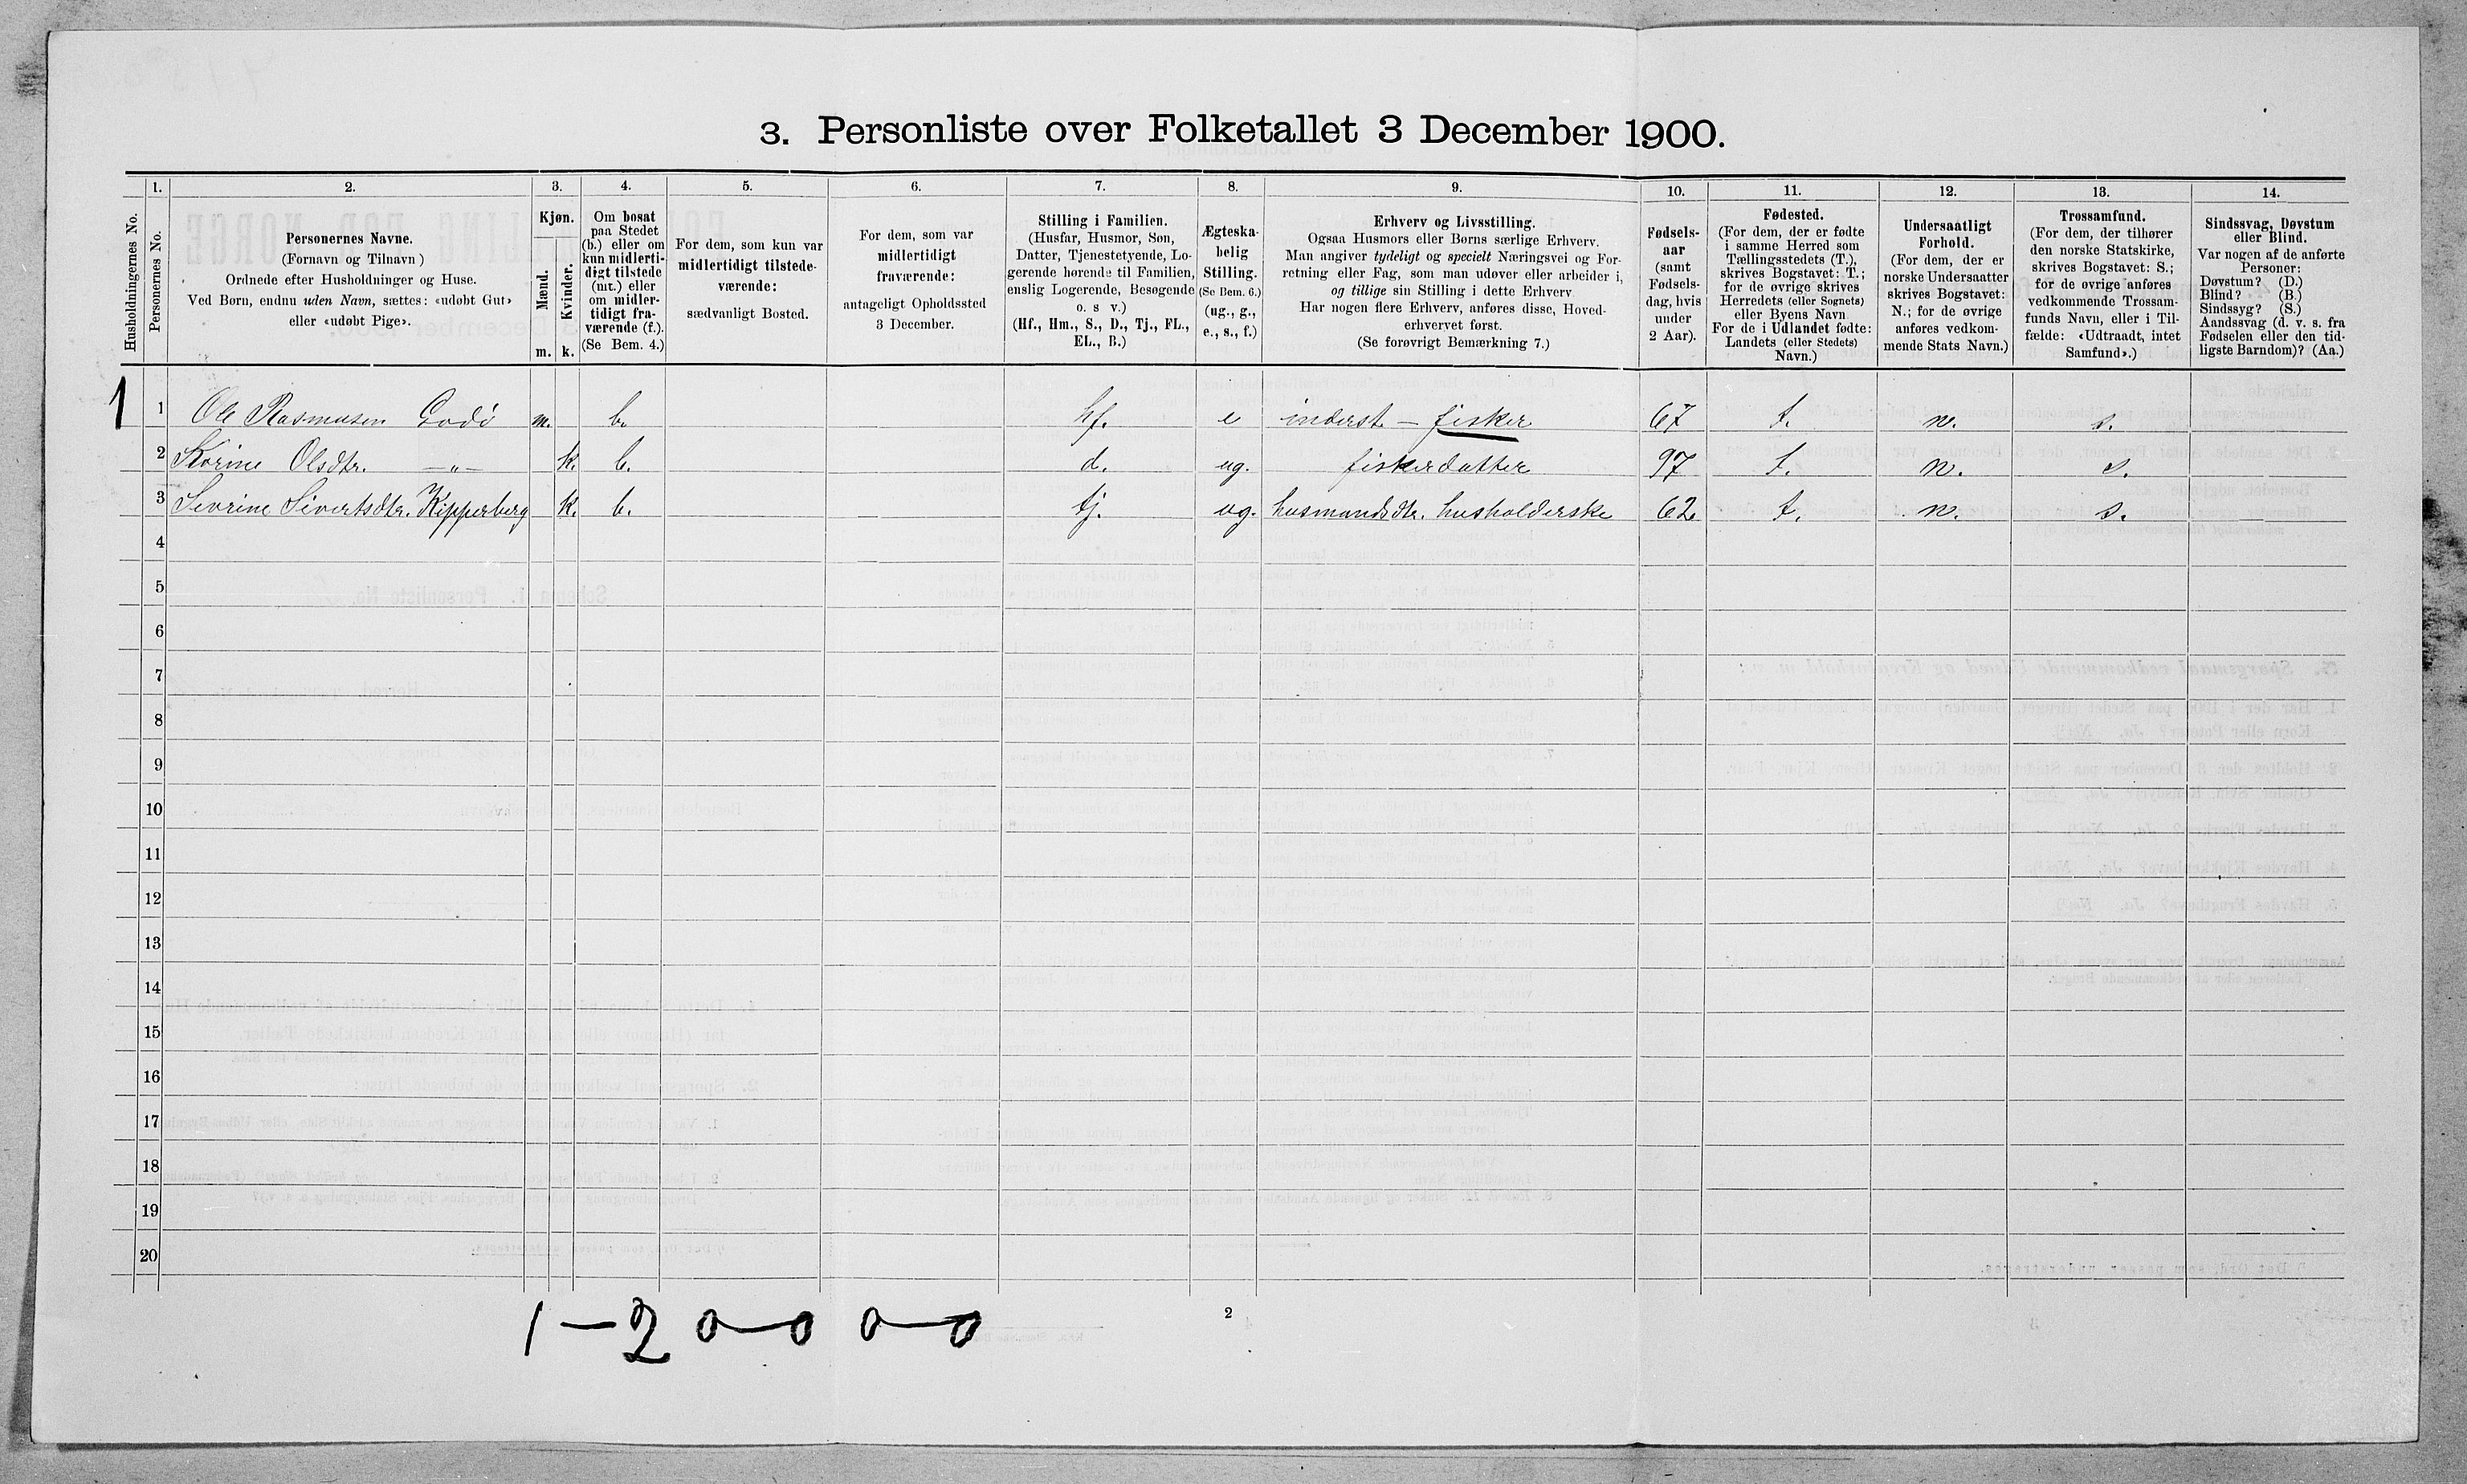 3. Personliste over Folketallet 3 December 1900.
1. 2. 3. 4. 5. 6. 7. 8. 9. 10. 11. 12. 13. 14.
Husholdningernes No.
Personernes No.
Personernes Navne.
(Fornavn og Tilnavn )
Ordnede efter Husholdninger og Huse.
Ved Børn, endnu uden Navn, sættes: «udøbt Gut»
eller «udøbt Pige».
Kjøn.
Mænd.
Kvinder.
m. k.
Om bosat
paa Stedet
(b.) eller om
kun midlerti-
digt tilstede
(mt.) eller
om midler-
tidigt fra-
værende (f.).
(Se Bem. 4.)
For dem, som kun var
midlertidigt tilstede-
værende:
sædvanligt Bosted.
For dem, som var
midlertidigt
fraværende:
antageligt Opholdssted
3 December.
Stilling i Familien.
(Husfar, Husmor, Søn,
Datter, Tjenestetyende, Lo-
gerende hørende til Familien,
enslig Logerende, Besøgende
o. s v.)
(Hf., Hm., S., D., Tj., FL.,
EL., B.)
Ægteska-
belig
Stilling.
(Se Bem. 6.)
(ug., g.,
e., s., f.)
Erhverv og Livsstilling.
Ogsaa Husmors eller Børns særlige Erhverv.
Man angiver tydeligt og specielt Næringsvei og For-
retning eller Fag, som man udøver eller arbeider i,
og tillige sin Stilling i dette Erhverv
Har nogen flere Erhverv, anføres disse, Hoved-
erhvervet først.
(Se forøvrigt Bemærkning 7.)
Fødsels-
aar
(samt
Fødsels-
dag, hvis
under
2 Aar).
Fødested.
(For dem, der er fødte
i samme Herred som
Tællingsstedets (T.),
skrives Bogstavet: T.;
for de øvrige skrives
Herredets (eller Sognets)
eller Byens Navn
For de i Udlandet fødte:
Landets (eller Stedets)
Navn.)
Undersaatligt
Forhold.
(For dem, der er
norske Undersaatter
skrives Bogstavet:
N.; for de øvrige
anføres vedkom-
mende Stats Navn.)
Trossamfund.
(For dem, der tilhører
den norske Statskirke,
skrives Bogstavet: S.;
for de øvrige anføres
vedkommende Trossam-
funds Navn, eller i Til-
fælde: «Udtraadt, intet
Samfund».)
Sindssvag, Døvstum
eller Blind.
Var nogen af de anførte
Personer:
Døvstum? (D.)
Blind? (B.)
Sindssyg? (S.)
Aandssvag (d. v. s. fra
Fødselen eller den tid-
ligste Barndom)? (Aa.)
1 1 Ole Rasmusen Godø m. b. hf. e inderst. – fisker 67 t. n. s.
2 Korine Olsdtr. —"— k. b. d. ug. fiskerdatter 97 t. n. s.
3 Sevrine Sivertsdtr. Kipperberg k. b. tj. ug. husmandsdtr. husholderske 62 t. n. s.
4
5
6
7
8
9
10
11
12
13
14
15
16
17
18
19
20
1 – 2 0 – 0 0 – 0
2